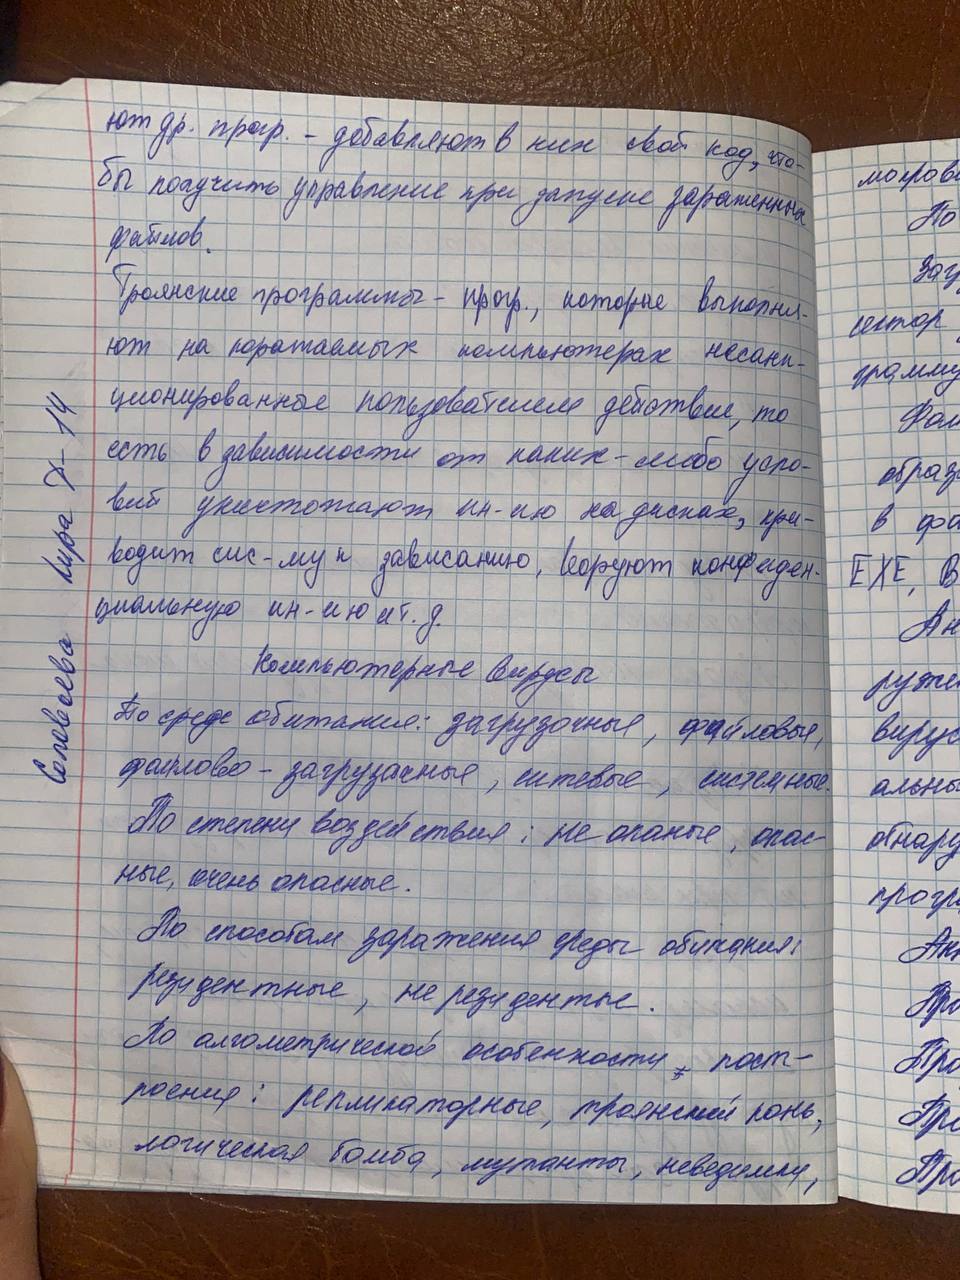 ют др. прогр. - добавляют в них свой код, что-
бы получить управление при запуске зараженных
файлов.
Троянские программы - прогр., которые выполня-
ют на поражаемых компьютерах несанк-
ционированные пользователем действие, то
есть в зависимости от каких-либо усло-
вий уничтожают ин-ию на дисках, при-
водит сис-му к зависанию, воруют конфиден-
циальную ин-ию и т. д.
Компьютерные вирусы
По среде обитания: загрузочные, файловые,
файлово - загрузачные, ситевые, системные.
По степени воздействия: не опаные, опас-
ные, очень опасные.
По способам заражения среды обитания:
резидентные, не резидентые.
По алгометрической особенности, пост-
роения: репликаторные, троянский конь,
логическая бомба, мутанты, неведимки,
Соловьева Кира
моров
По
Загр
сектор
грамму
Фай
образ
в фа
EXE, B
Ан
руже
вирус
альны
обнару
прогр
Ан
Про
Про
Про
Про